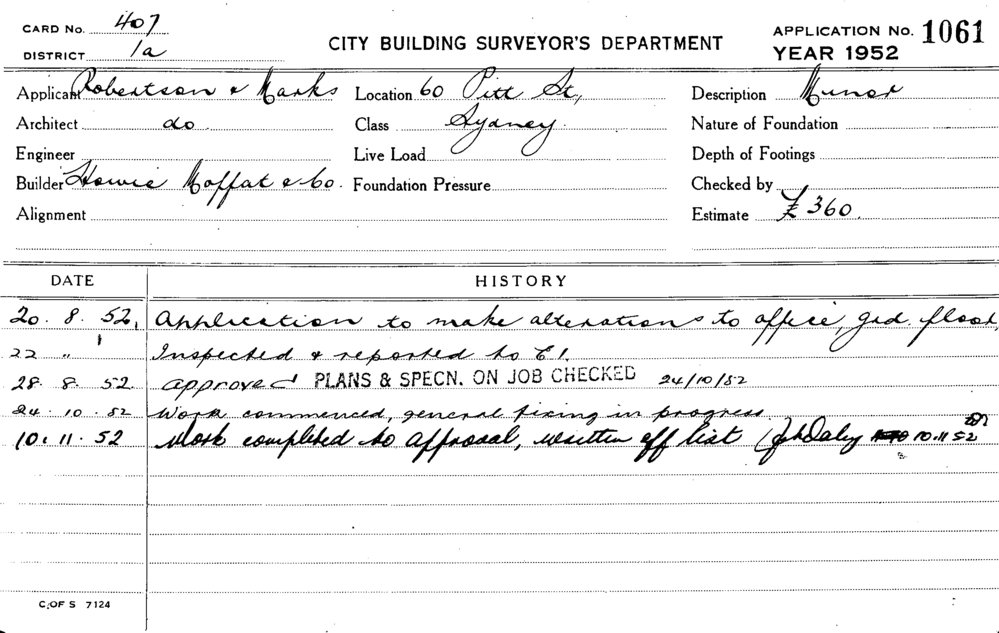 CARD No. 407
DISTRICT 1a
CITY BUILDING SURVEYOR'S DEPARTMENT
APPLICATION No. 1061
YEAR 1952
Applicant Robertson & Marks Location 60 Pitt St, Description Minor
Architect do Class Sydney. Nature of Foundation
Engineer Live Load Depth of Footings
Builder Howie Moffat & Co. Foundation Pressure Checked by
Alignment Estimate £ 360.
DATE HISTORY
20. 8. 52. Application to make alterations to office, grd. floor,
22 " ' Inspected & reported to E1.
28. 8. 52. approved PLANS & SPECN. ON JOB CHECKED 24/10/52
24. 10. 52 Work commenced, general fixing in progress
10. 11. 52 Work completed to approval, written off list Daley 10.11.52
C. OF S 7124